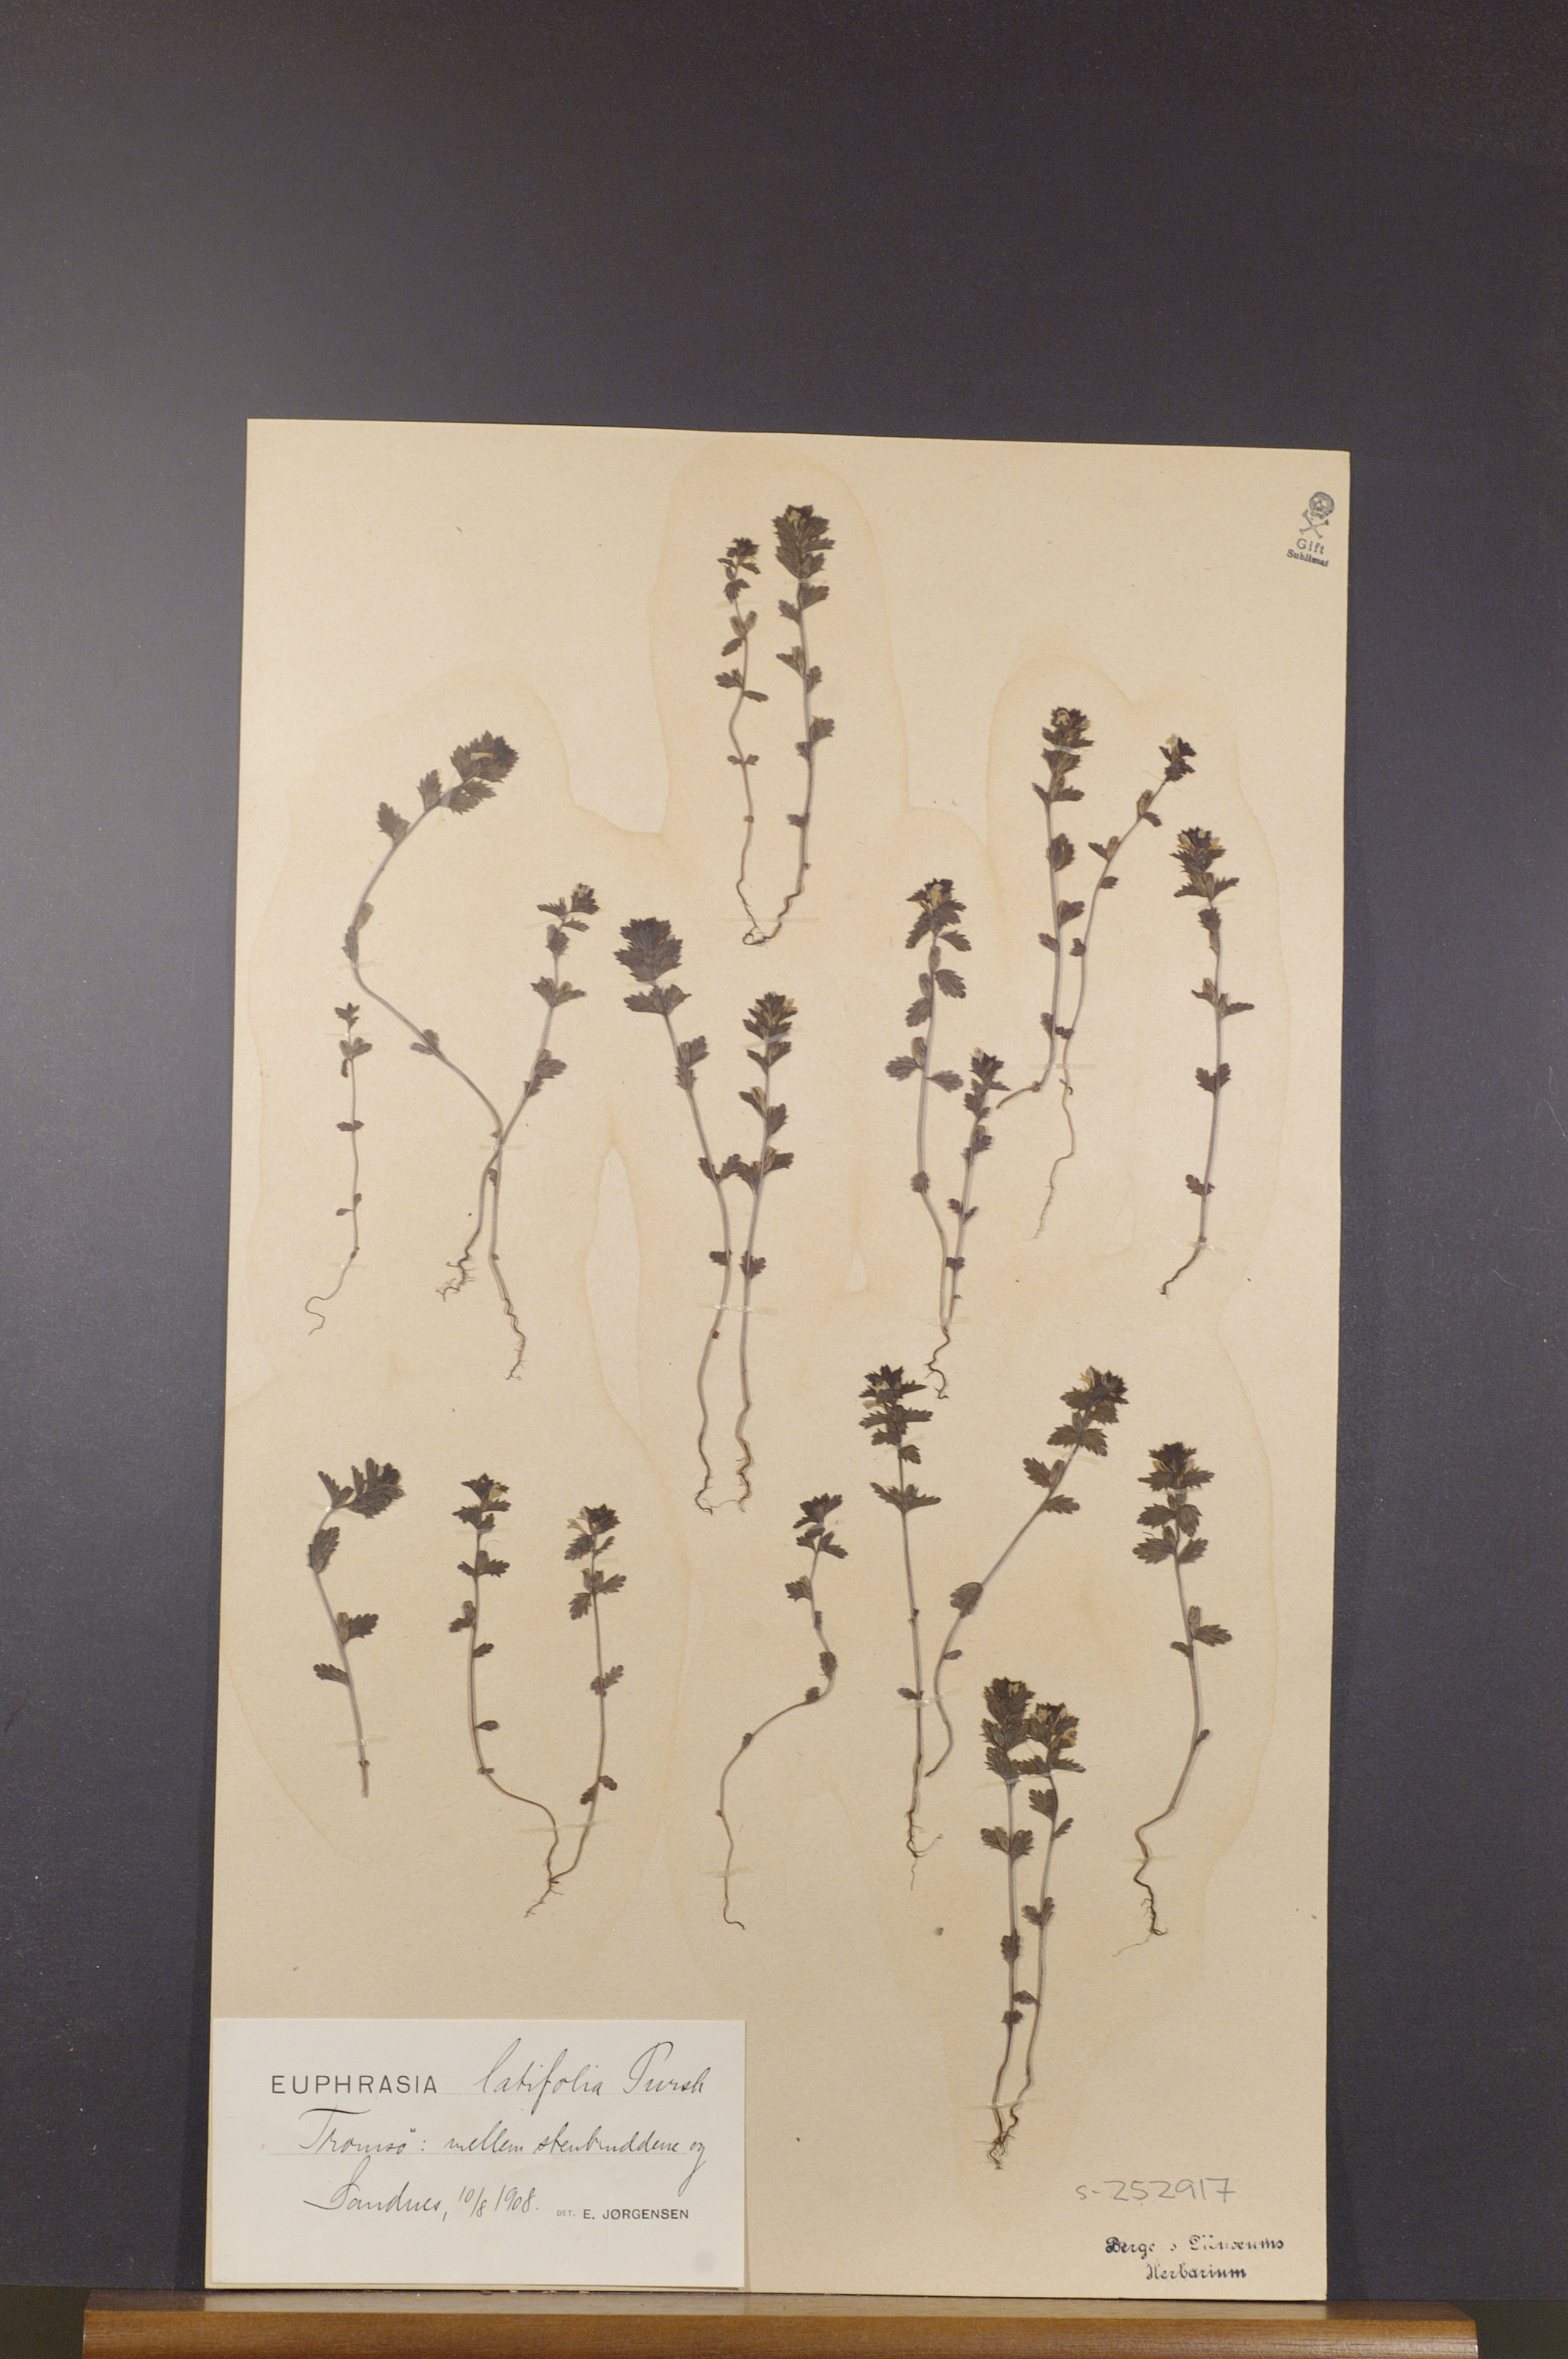 Gift
Sublimat
EUPHRASIA latifolia Pursh
Tromsö: mellem stenbruddene og
Sandnes, 10/8 1908. DET. E. JØRGENSEN
S-252917
Berge s Museums
Herbarium